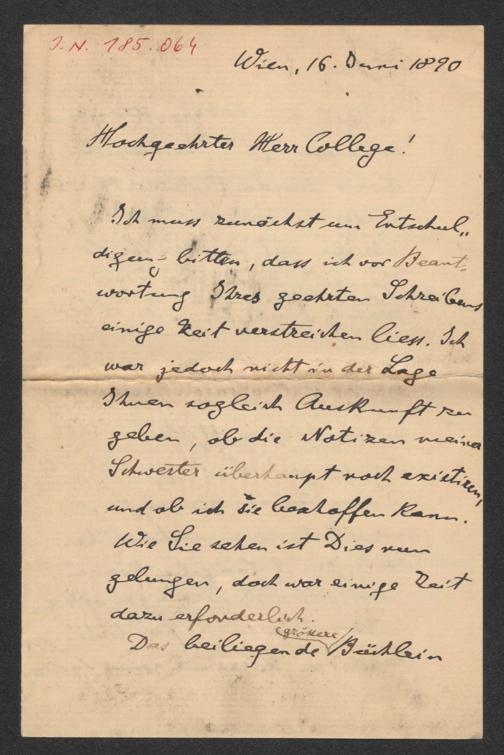 J. N. 185.064
Wien, 16. Juni 1890
Hochgeehrter Herr College!
Ich muss zunächst um Entschul„
digung bitten, dass ich vor Beant-
wortung Ihres geehrten Schreibens
einige Zeit verstreichen liess. Ich
war jedoch nicht in der Lage
Ihnen sogleich Auskunft zu
geben, ob die Notizen meiner
Schwester überhaupt noch existiren,
und ob ich sie beschaffen kann.
Wie Sie sehen ist Dies nun
gelungen, doch war einige Zeit
dazu erforderlich.
Das beiliegende (grössere) Büchlein